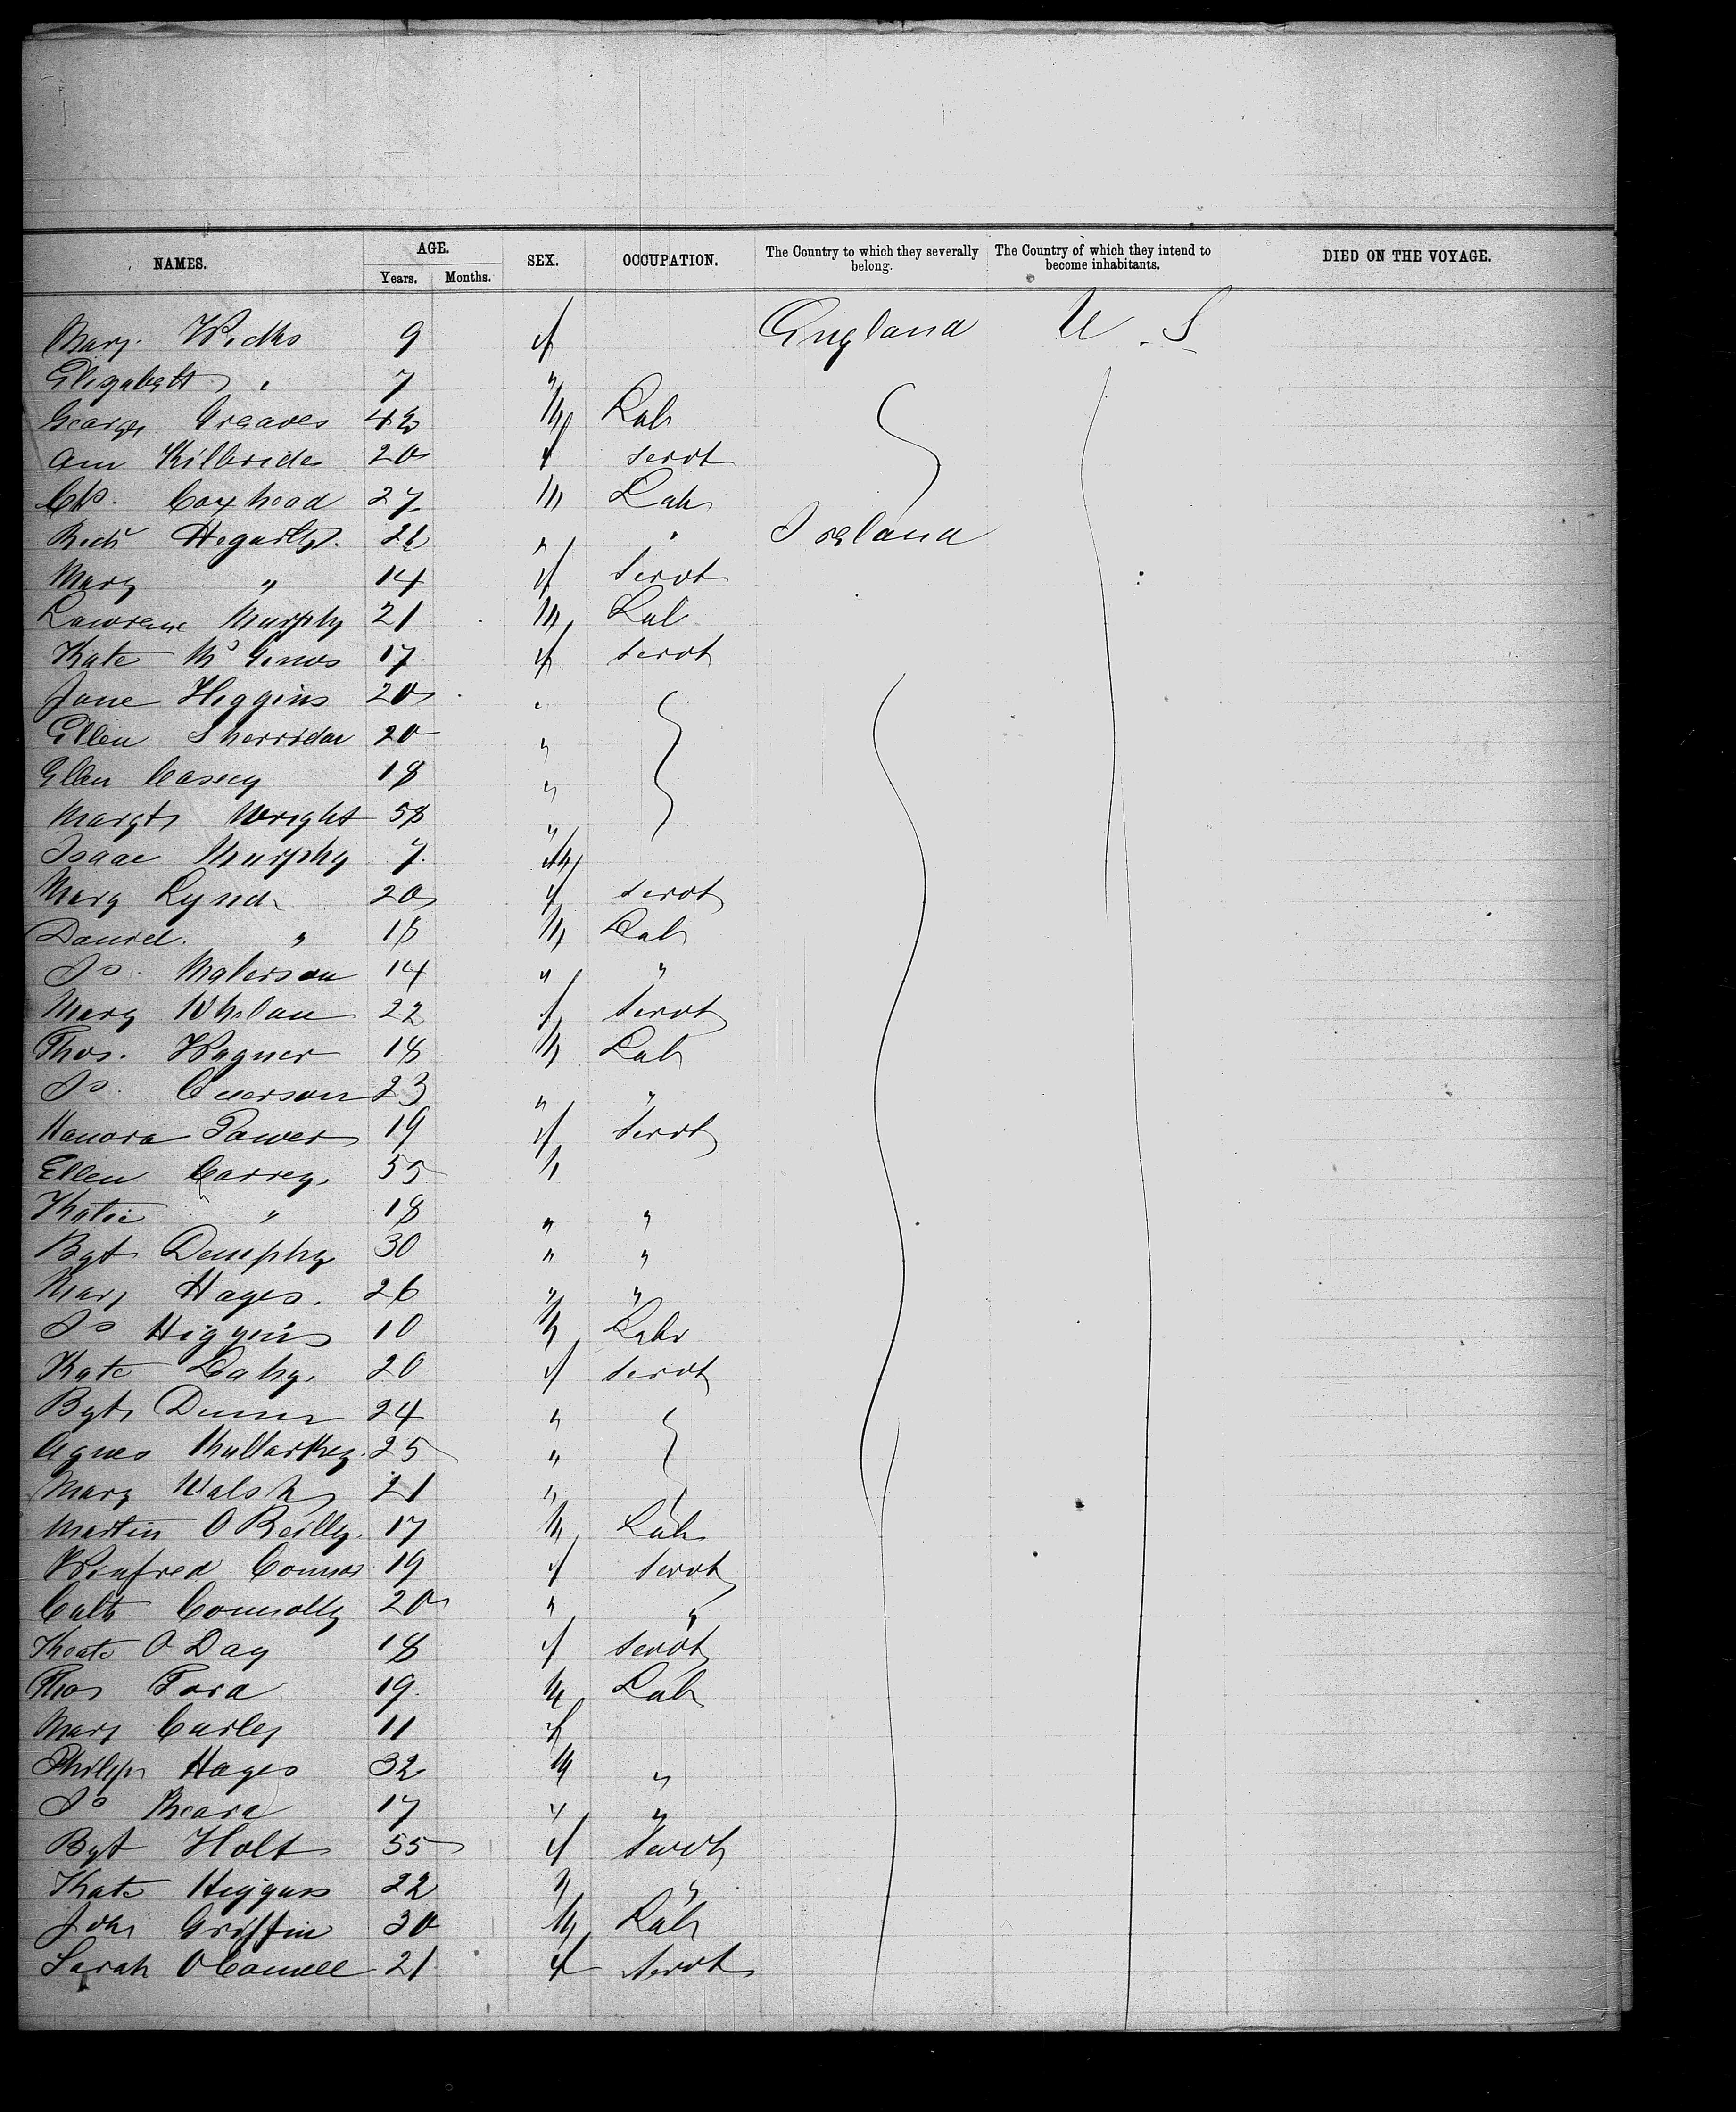 NAMES. AGE. SEX. OCCUPATION. The Country to which they severally belong. The Country of which they intend to become inhabitants. DIED ON THE VOYAGE.
Years. Months.
Mary Wicks 9 f England U.S.
Elizabeth " 7 "
George Greaves 42 m Lab
Ann Kilbride 20 f Servt
Chs. Coxhead 27 m Lab
Richd Hegarty 22 " " Ireland
Mary " 14 f Servt
Lawrence Murphy 21 m Lab
Kate McGinnis 17 f Servt
Jane Higgins 20 "
Ellen Sherridan 20 "
Ellen Casey 18 "
Margt Wright 58 "
Isaac Murphy 7 m
Mary Lynd 20 f Servt
Daniel " 18 m Lab
Js. 14 " "
Mary Whelan 22 f Servt
Thos. Wagner 18 m Lab
Js. 23 " "
Hanora Power 19 f Servt
Ellen Carrey 55 "
Katie " 18 " "
Bgt Demphy 30 " "
Mary Hayes 26 " "
Js Higgins 10 m Lab
Kate Lahy 20 f Servt
Bgt Dunn 24 "
Agnes Mullarkey 25 "
Mary Walsh 21 "
Martin O Reilly 17 m Lab
Winfred Connor 19 f Servt
Cath Connolly 20 " "
Kate O Day 18 f Servt
Thos Ford 19 m Lab
Mary Curley 11 f
Philip Hayes 32 m "
Js 17 " "
Bgt Holt 55 f Servt
Kate Higgins 22 " "
John Griffin 30 m Lab
Sarah OConnell 21 f Servt